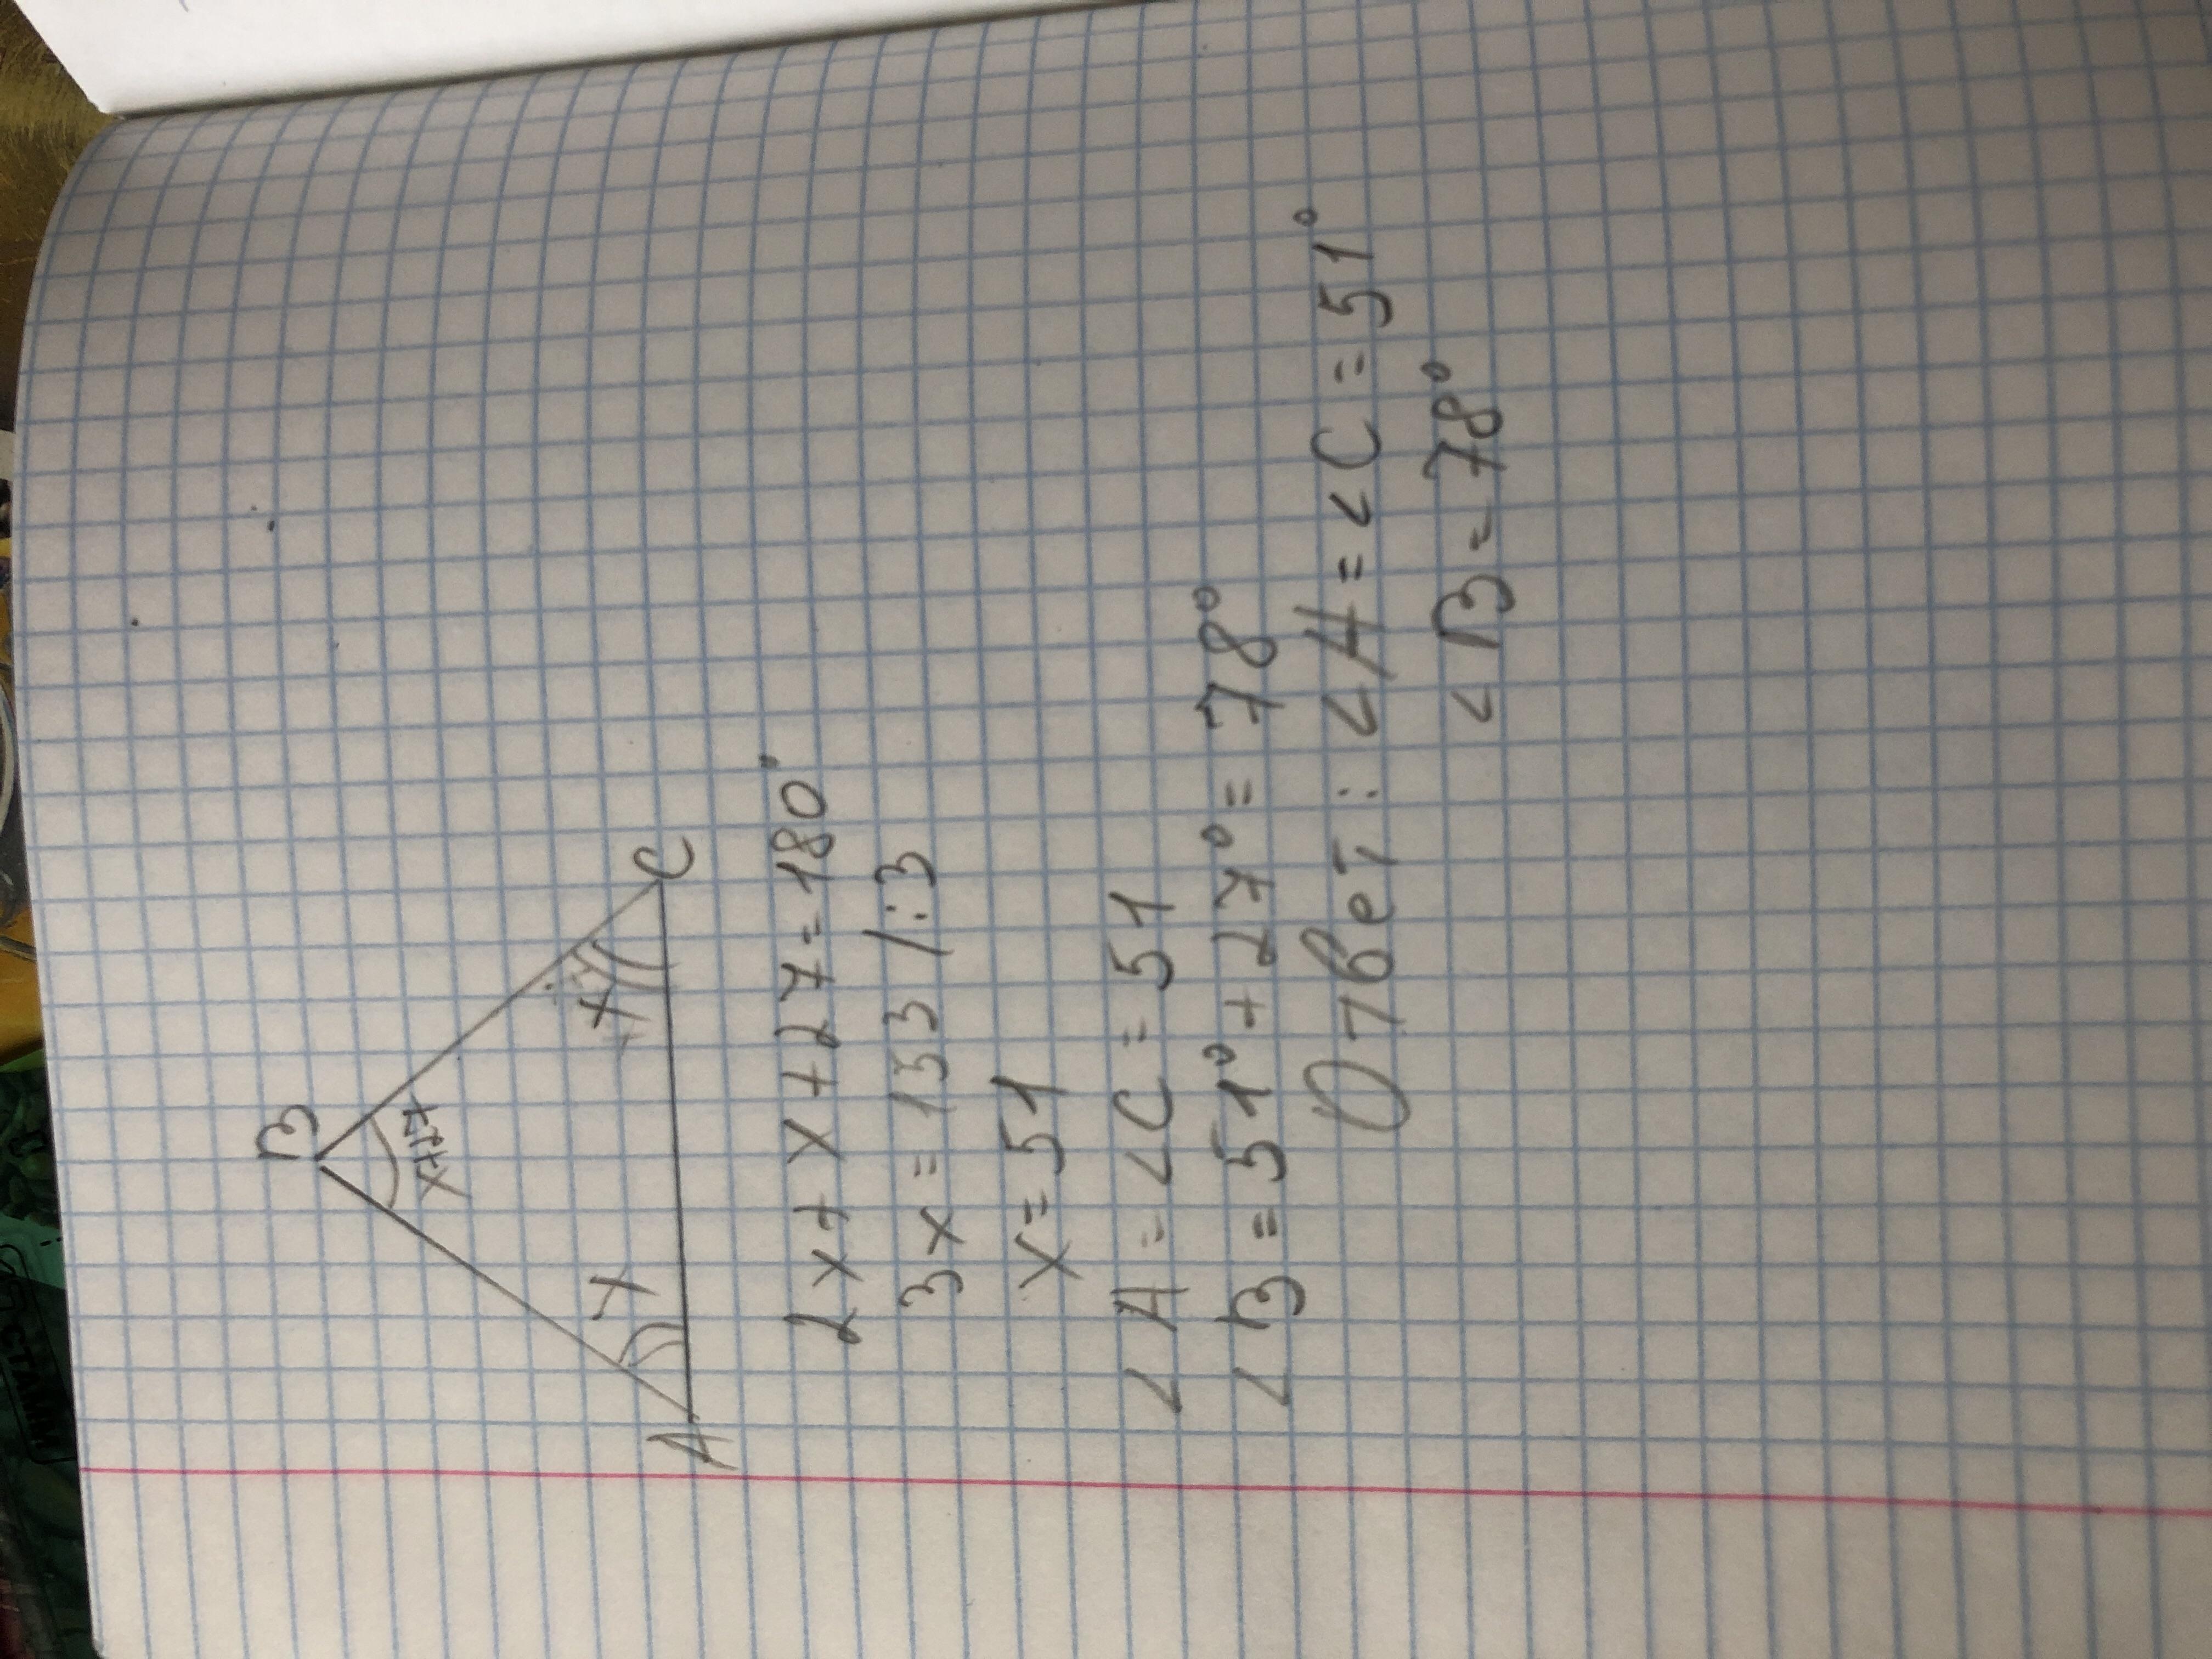 B
x+27
x
x
A
C
2x + x + 27 = 180°
3x = 153 /:3
x = 51
∠A = ∠C = 51
∠B = 51° + 27° = 78°
Ответ: ∠A = ∠C = 51°
∠B = 78°